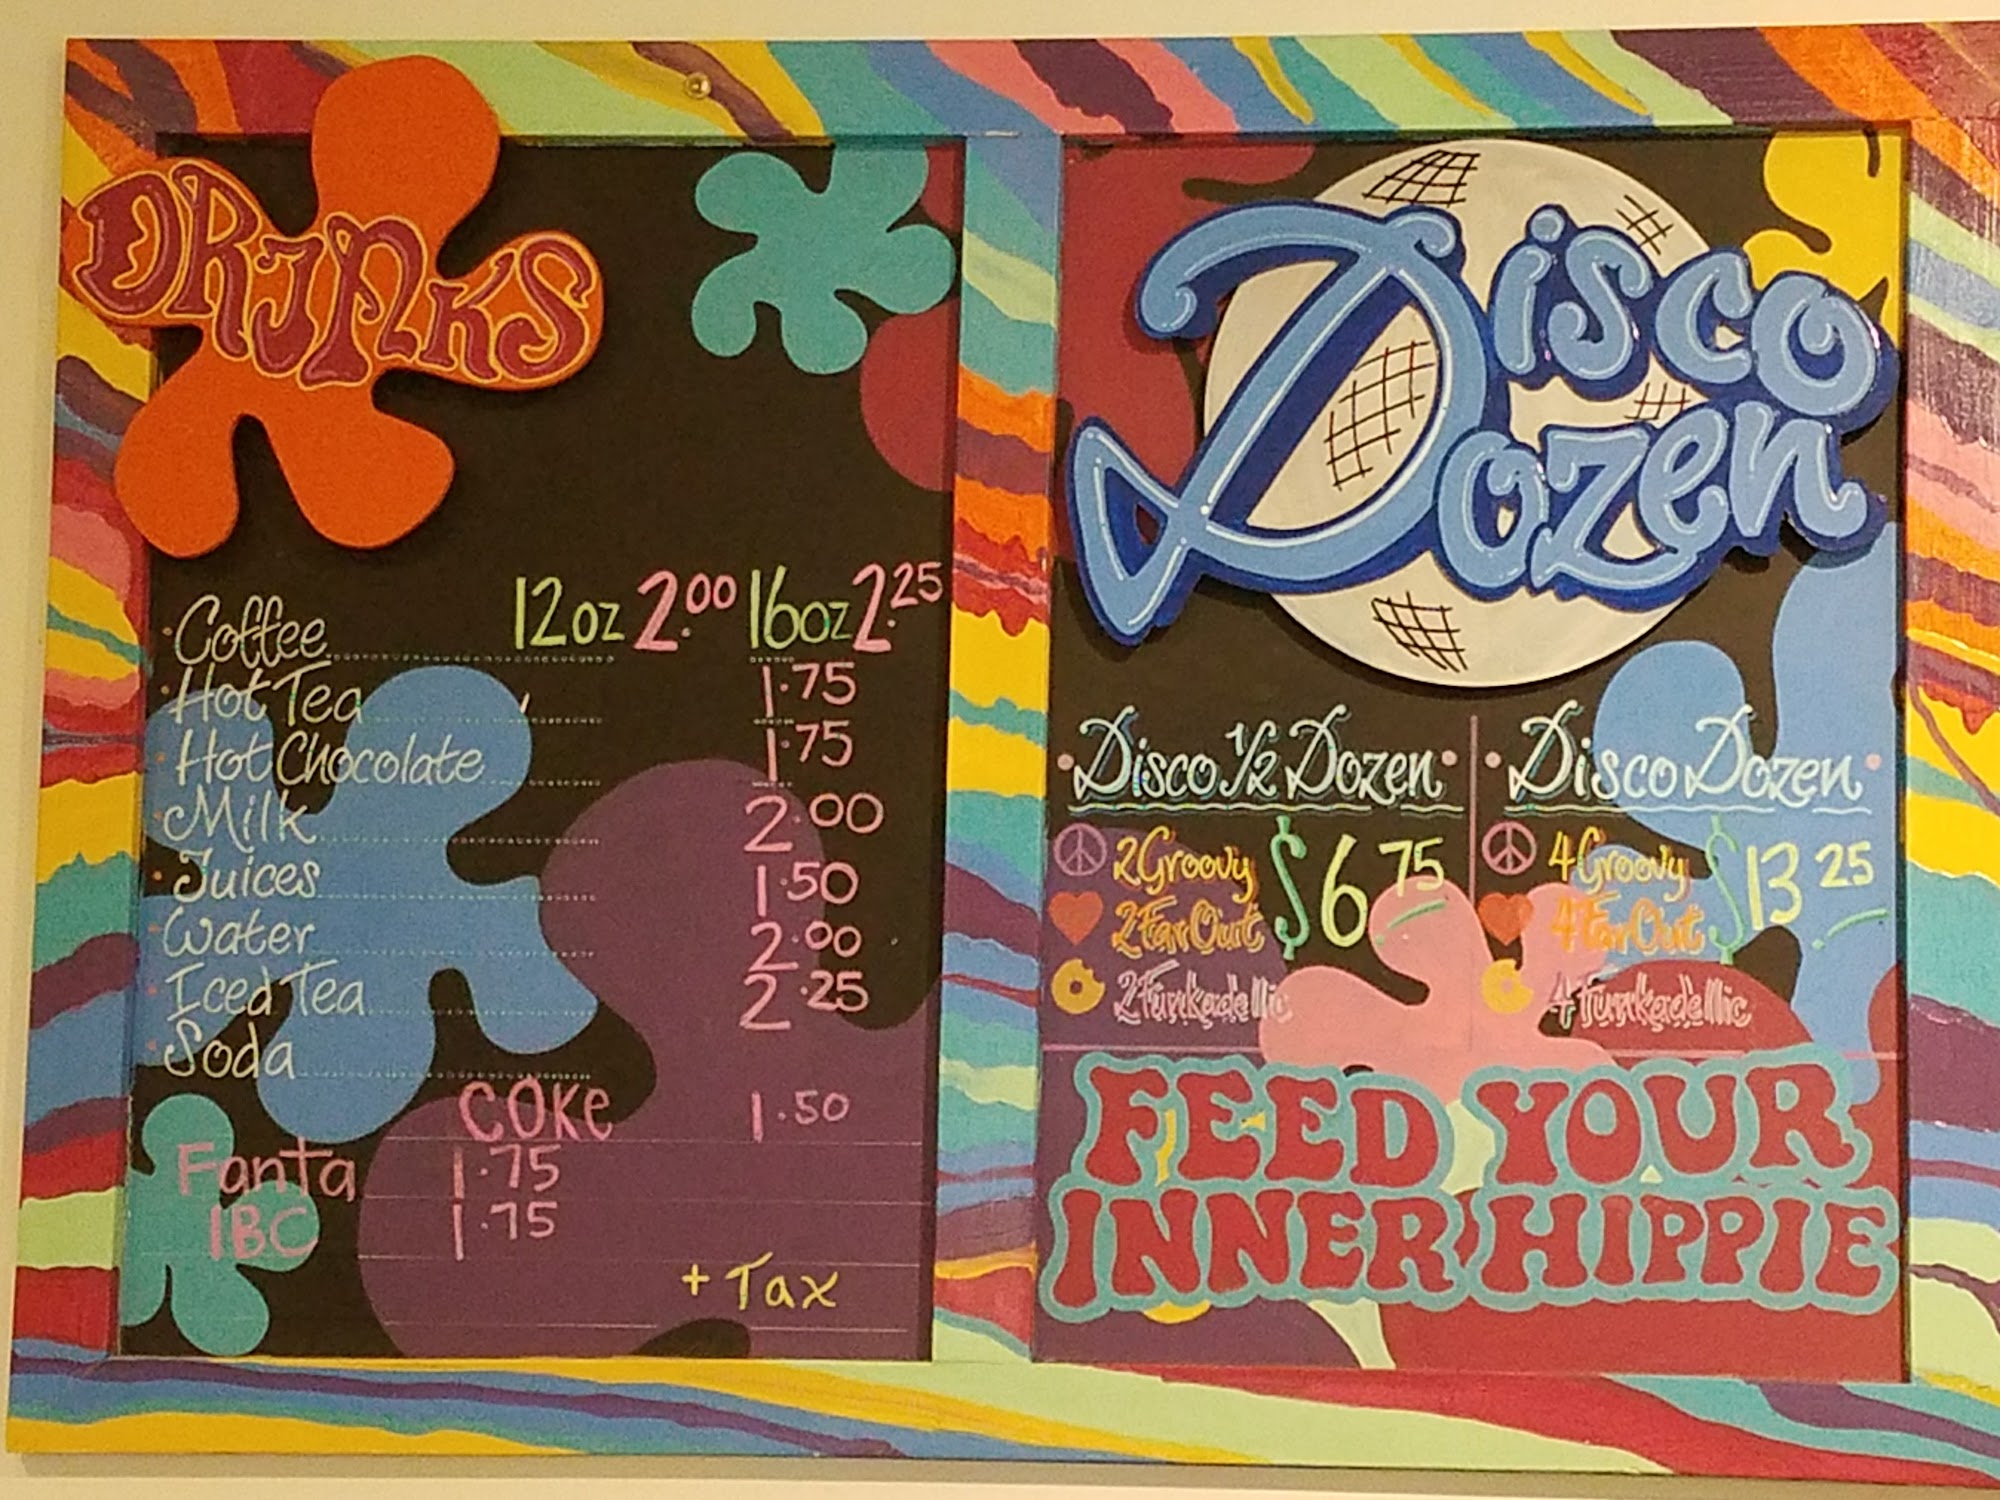 DRINKS
Coffee 12oz 2.00 16oz 2.25
Hot Tea 1.75
Hot Chocolate 1.75
Milk 2.00
Juices 1.50
Water 2.00
Iced Tea 2.25
Soda
COKe 1.50
Fanta 1.75
IBC 1.75
+ Tax
Disco
Dozen
Disco 1/2 Dozen
2 Groovy $6 75
2 Far Out
2 Funkadellic
Disco Dozen
4 Groovy $13 25
4 Far Out
4 Funkadellic
FEED YOUR
INNER HIPPIE